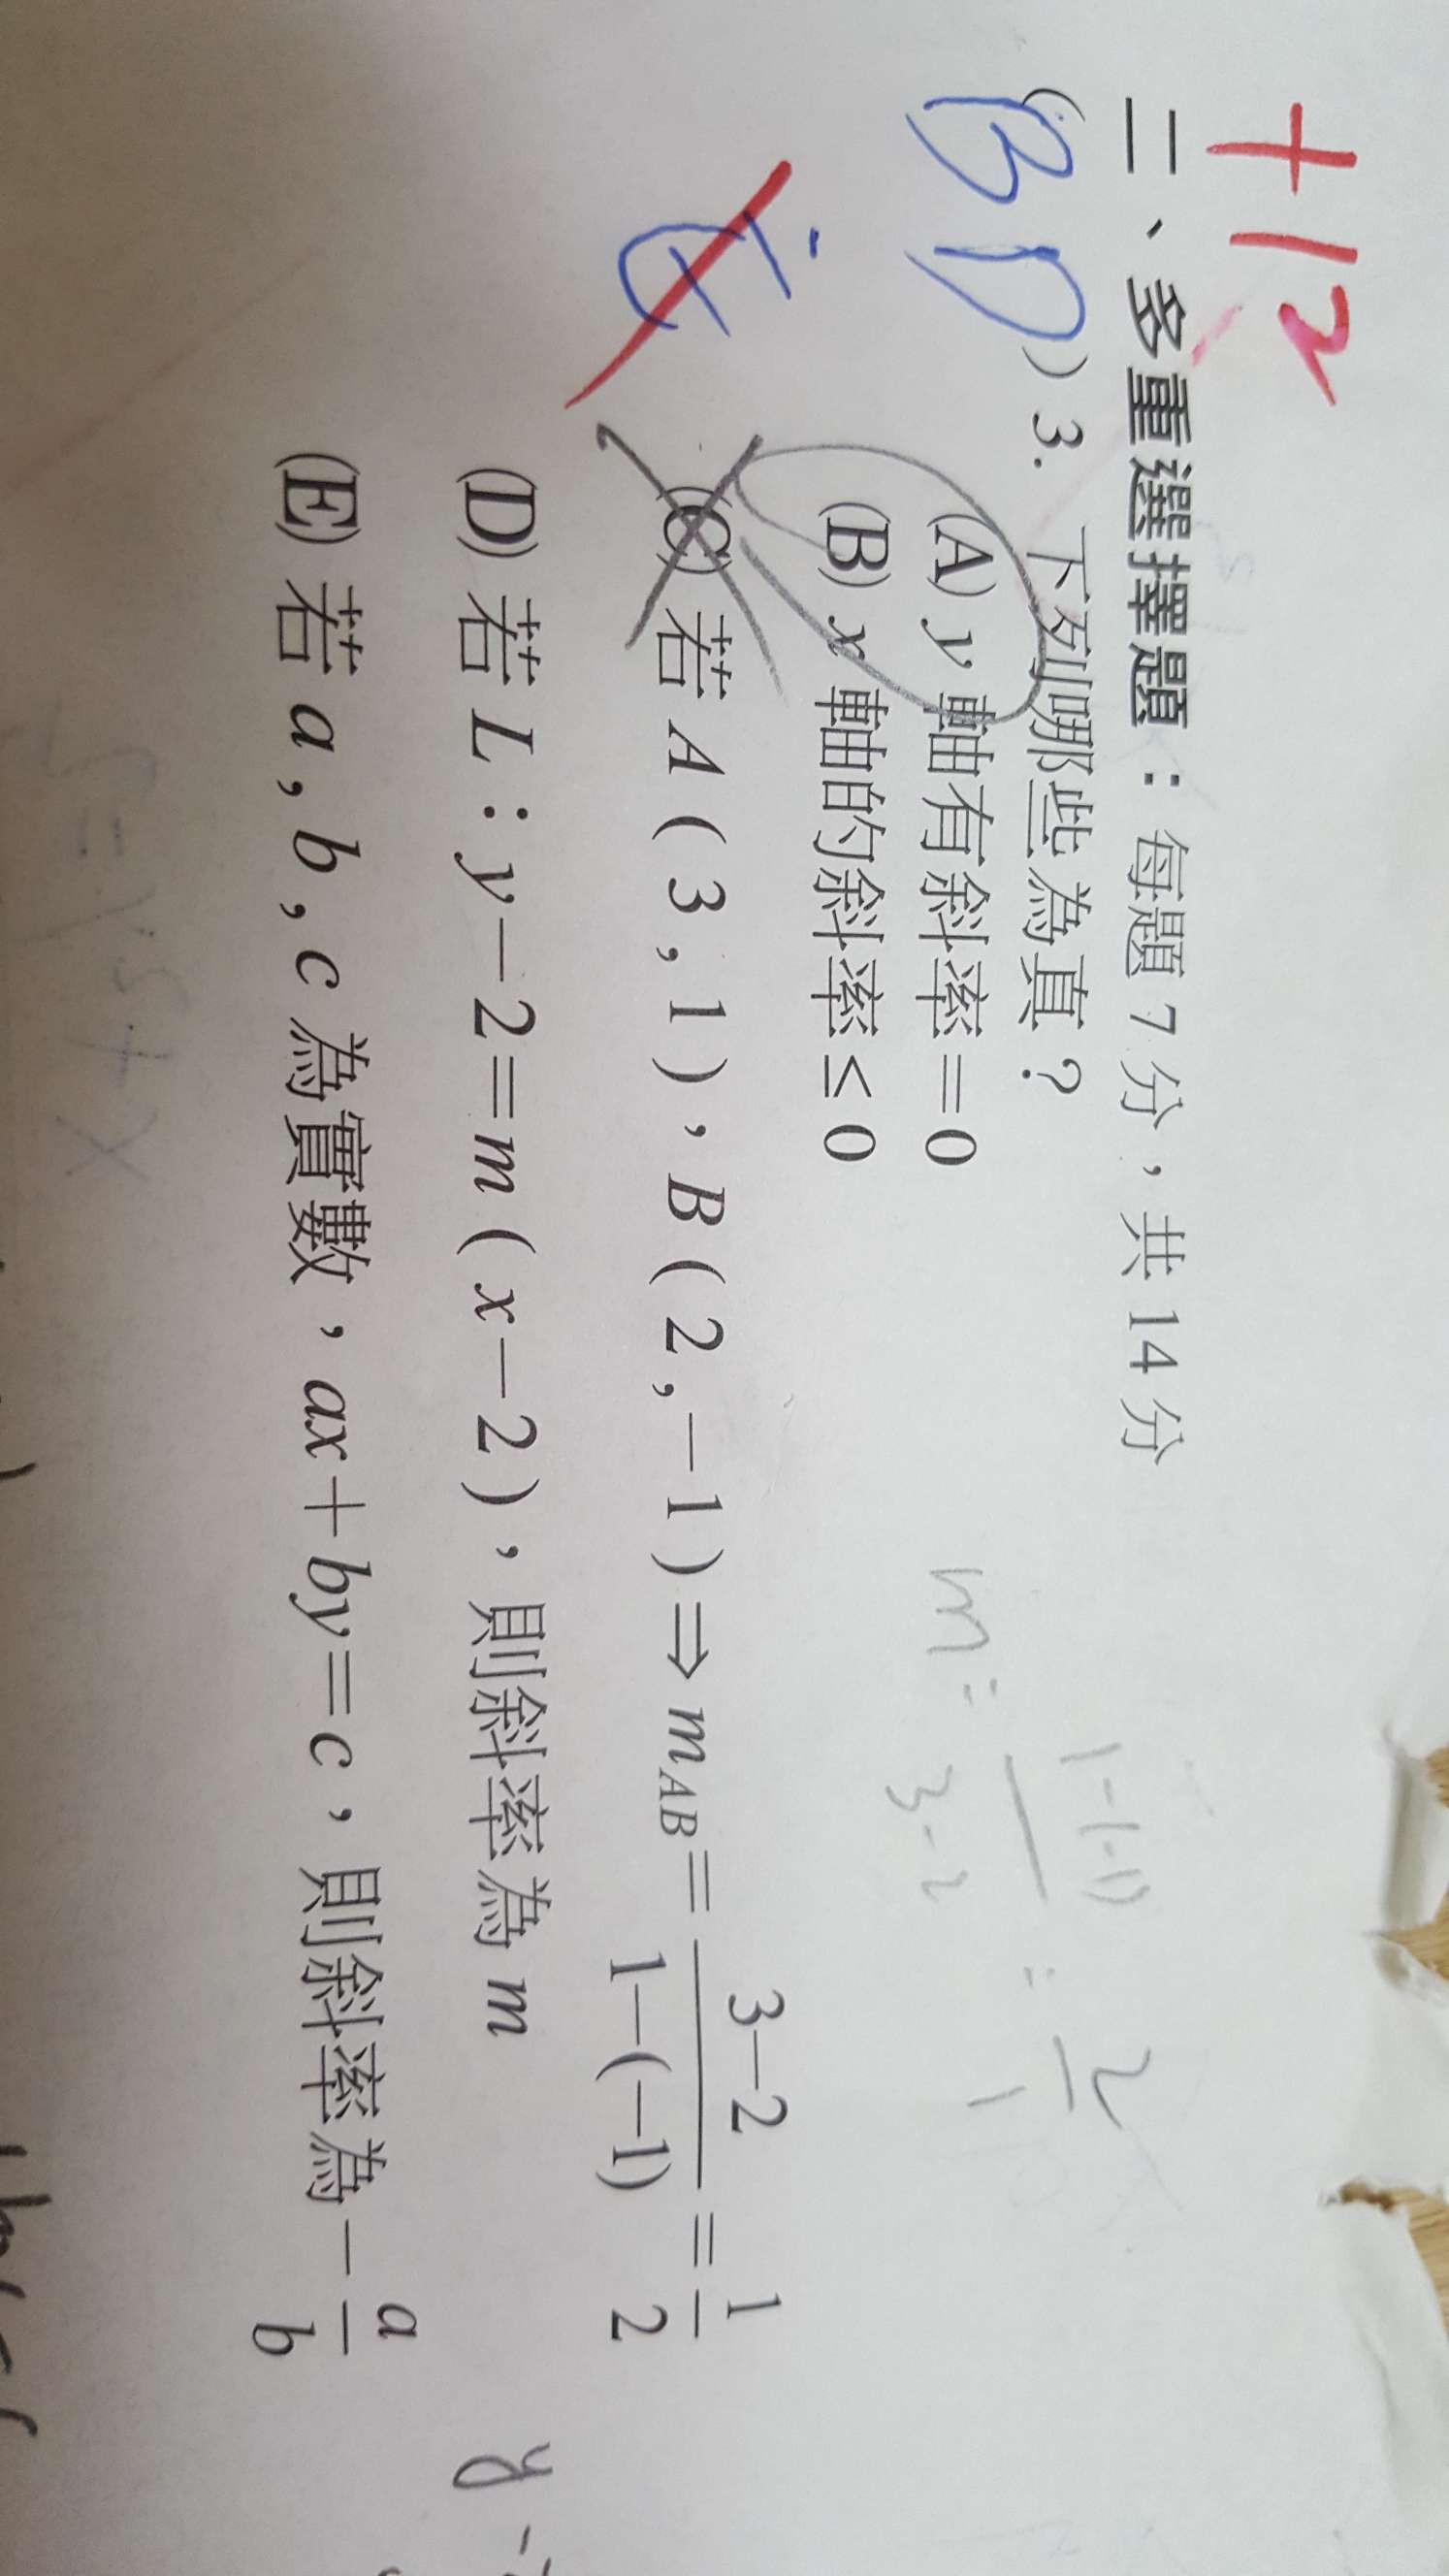 +12
二、多重選擇題：每題 7 分，共 14 分
(BD) 3. 下列哪些為真？
(A) y 軸有斜率＝0
(B) x 軸的斜率 ≤ 0
E
(C) 若 A ( 3 , 1 )，B ( 2 , －1 ) ⇒ mAB＝3－2/1－(－1)＝1/2
(D) 若 L：y－2＝m ( x－2 )，則斜率為 m
(E) 若 a , b , c 為實數，ax＋by＝c，則斜率為－a/b
m = 1-(-1)/3-2 = 2/1